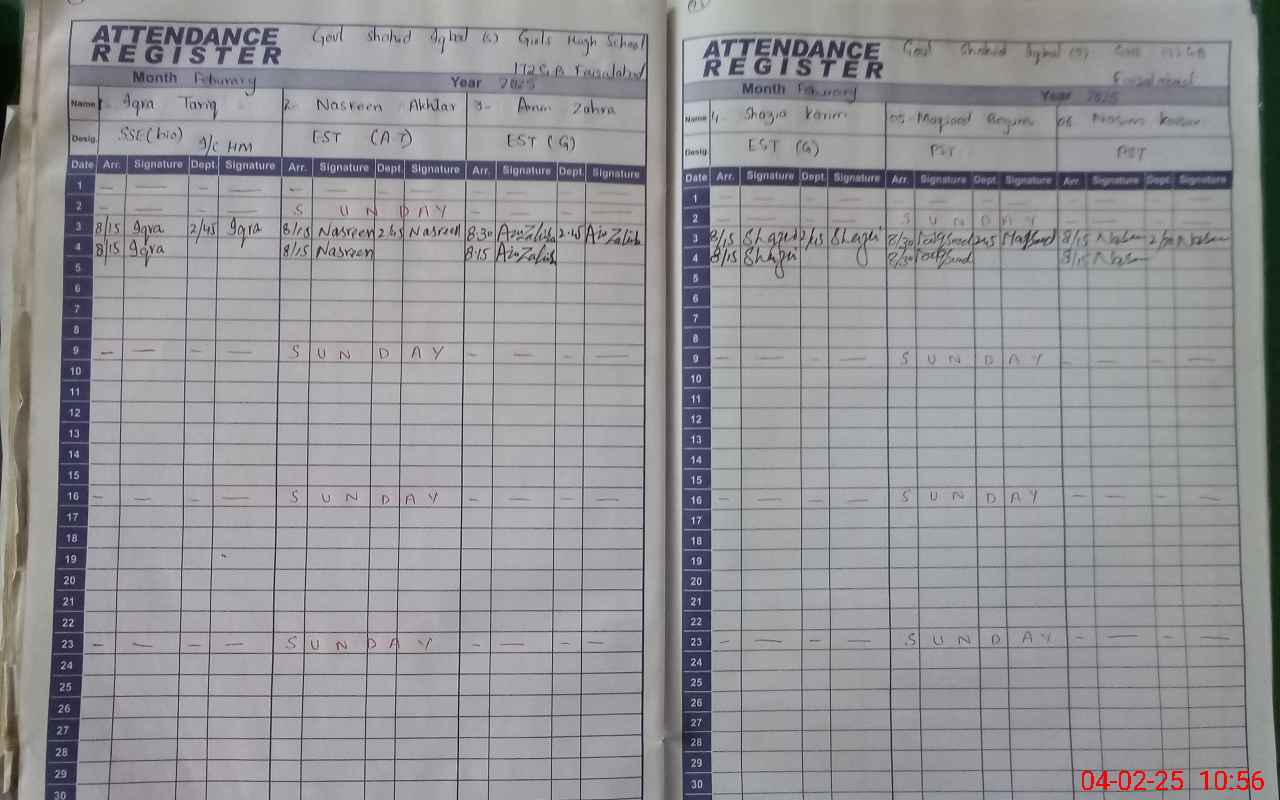 ATTENDANCE REGISTER
Govt Shahid Iqbal (S) Girls High School
172 G.B Faisalabad
Month Feburary Year 2025
Name 1. Iqra Tariq 2- Nasreen Akhtar 3- Zahra
Desig. SSE(bio) I/c HM EST (A.T) EST (G)
Date Arr. Signature Dept. Signature Arr. Signature Dept. Signature Arr. Signature Dept. Signature
1 — — — — — — — —
2 — — — — S U N D A Y — — — —
3 8/15 Iqra 2/45 Iqra 8/15 Nasreen 2:45 Nasreen 8:30 2:45
4 8/15 Iqra 8/15 Nasreen 8:15
5
6
7
8
9 — — — — S U N D A Y — — — —
10
11
12
13
14
15
16 — — — — S U N D A Y — — — —
17
18
19
20
21
22
23 — — — — S U N D A Y — — — —
24
25
26
27
28
29
30
ATTENDANCE REGISTER
Govt Shahid Iqbal (S)
Faisalabad
Month Feburary Year 2025
Name 4. Shazia Karim 05- Maqsood Begum 06 Kausar
Desig. EST (G) PST
Date Arr. Signature Dept. Signature Arr. Signature Dept. Signature Arr. Signature Dept. Signature
1 — — — — — — — —
2 — — — — S U N D A Y — — — —
3 8/15 8/30 8/15
4 8/15 8/30 8/15
5
6
7
8
9 — — — — S U N D A Y — — — —
10
11
12
13
14
15
16 — — — — S U N D A Y — — — —
17
18
19
20
21
22
23 — — — — S U N D A Y — — — —
24
25
26
27
28
29
30
04-02-25 10:56